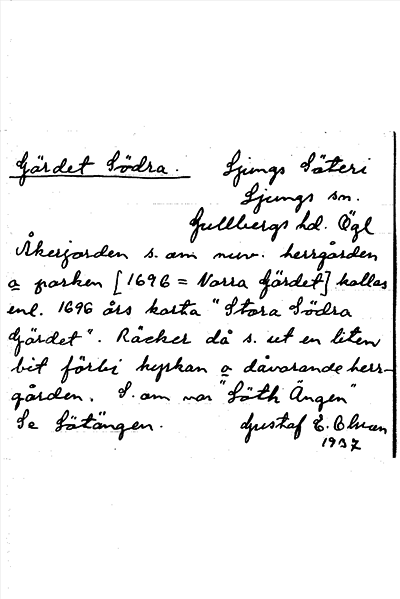 Gärdet Södra. Ljungs Säteri
Ljungs sn.
Gullbergs hd. Ögl
Åkerjorden s. om nuv. herrgården
o parken [1696 = Norra Gärdet] kallas
enl. 1696 års karta "Stora Södra
Gärdet". Räcker då s. ut en liten
bit förbi kyrkan o dåvarande herr-
gården. S. om var "Söth Ängen"
Se Sötängen. Gustaf E. Olsson
1937